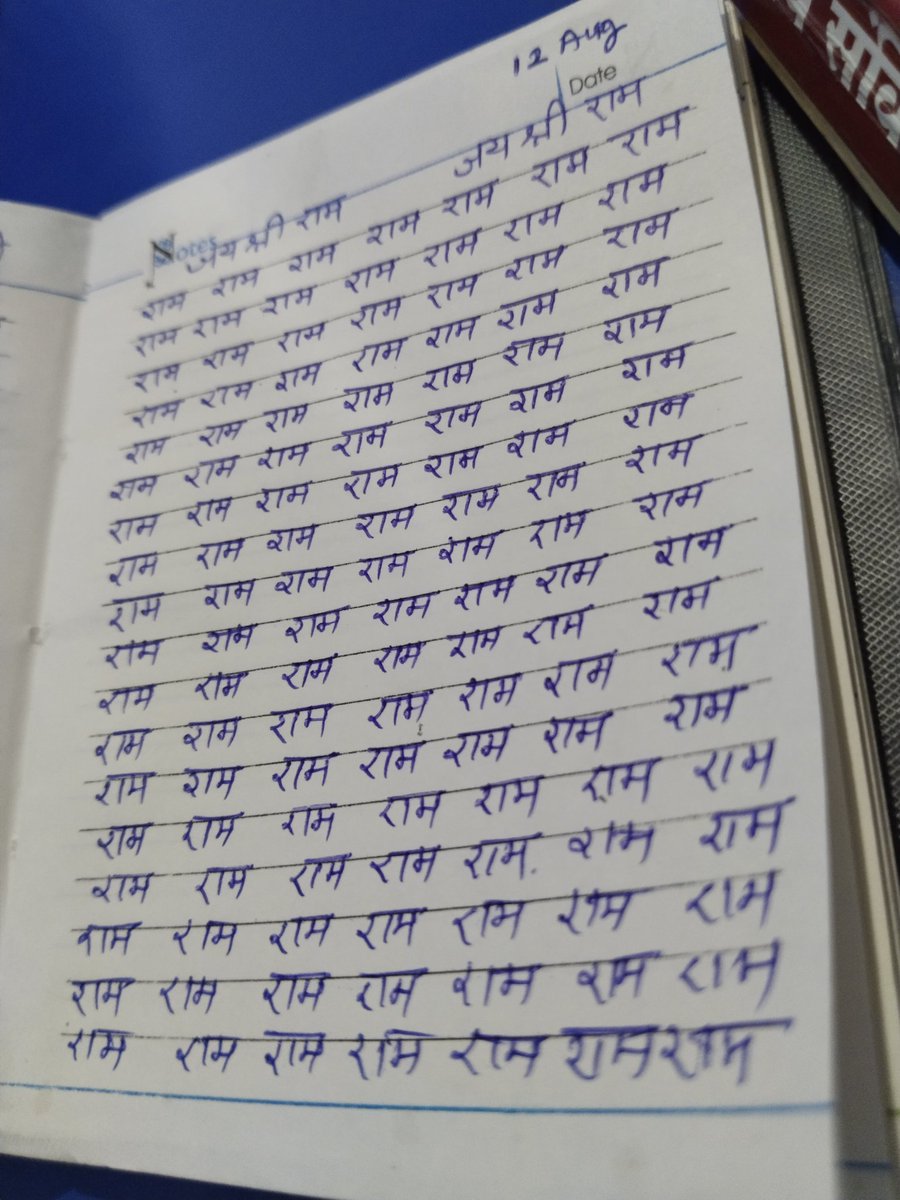 12 Aug
Date
Notes जय श्री राम जय श्री राम
राम राम राम राम राम राम राम
राम राम राम राम राम राम राम
राम राम राम राम राम राम राम
राम राम राम राम राम राम राम
राम राम राम राम राम राम राम
राम राम राम राम राम राम राम
राम राम राम राम राम राम राम
राम राम राम राम राम राम राम
राम राम राम राम राम राम राम
राम राम राम राम राम राम राम
राम राम राम राम राम राम राम
राम राम राम राम राम राम राम
राम राम राम राम राम राम राम
राम राम राम राम राम राम राम
राम राम राम राम राम राम राम
राम राम राम राम राम राम राम
राम राम राम राम राम राम राम
राम राम राम राम राम राम राम